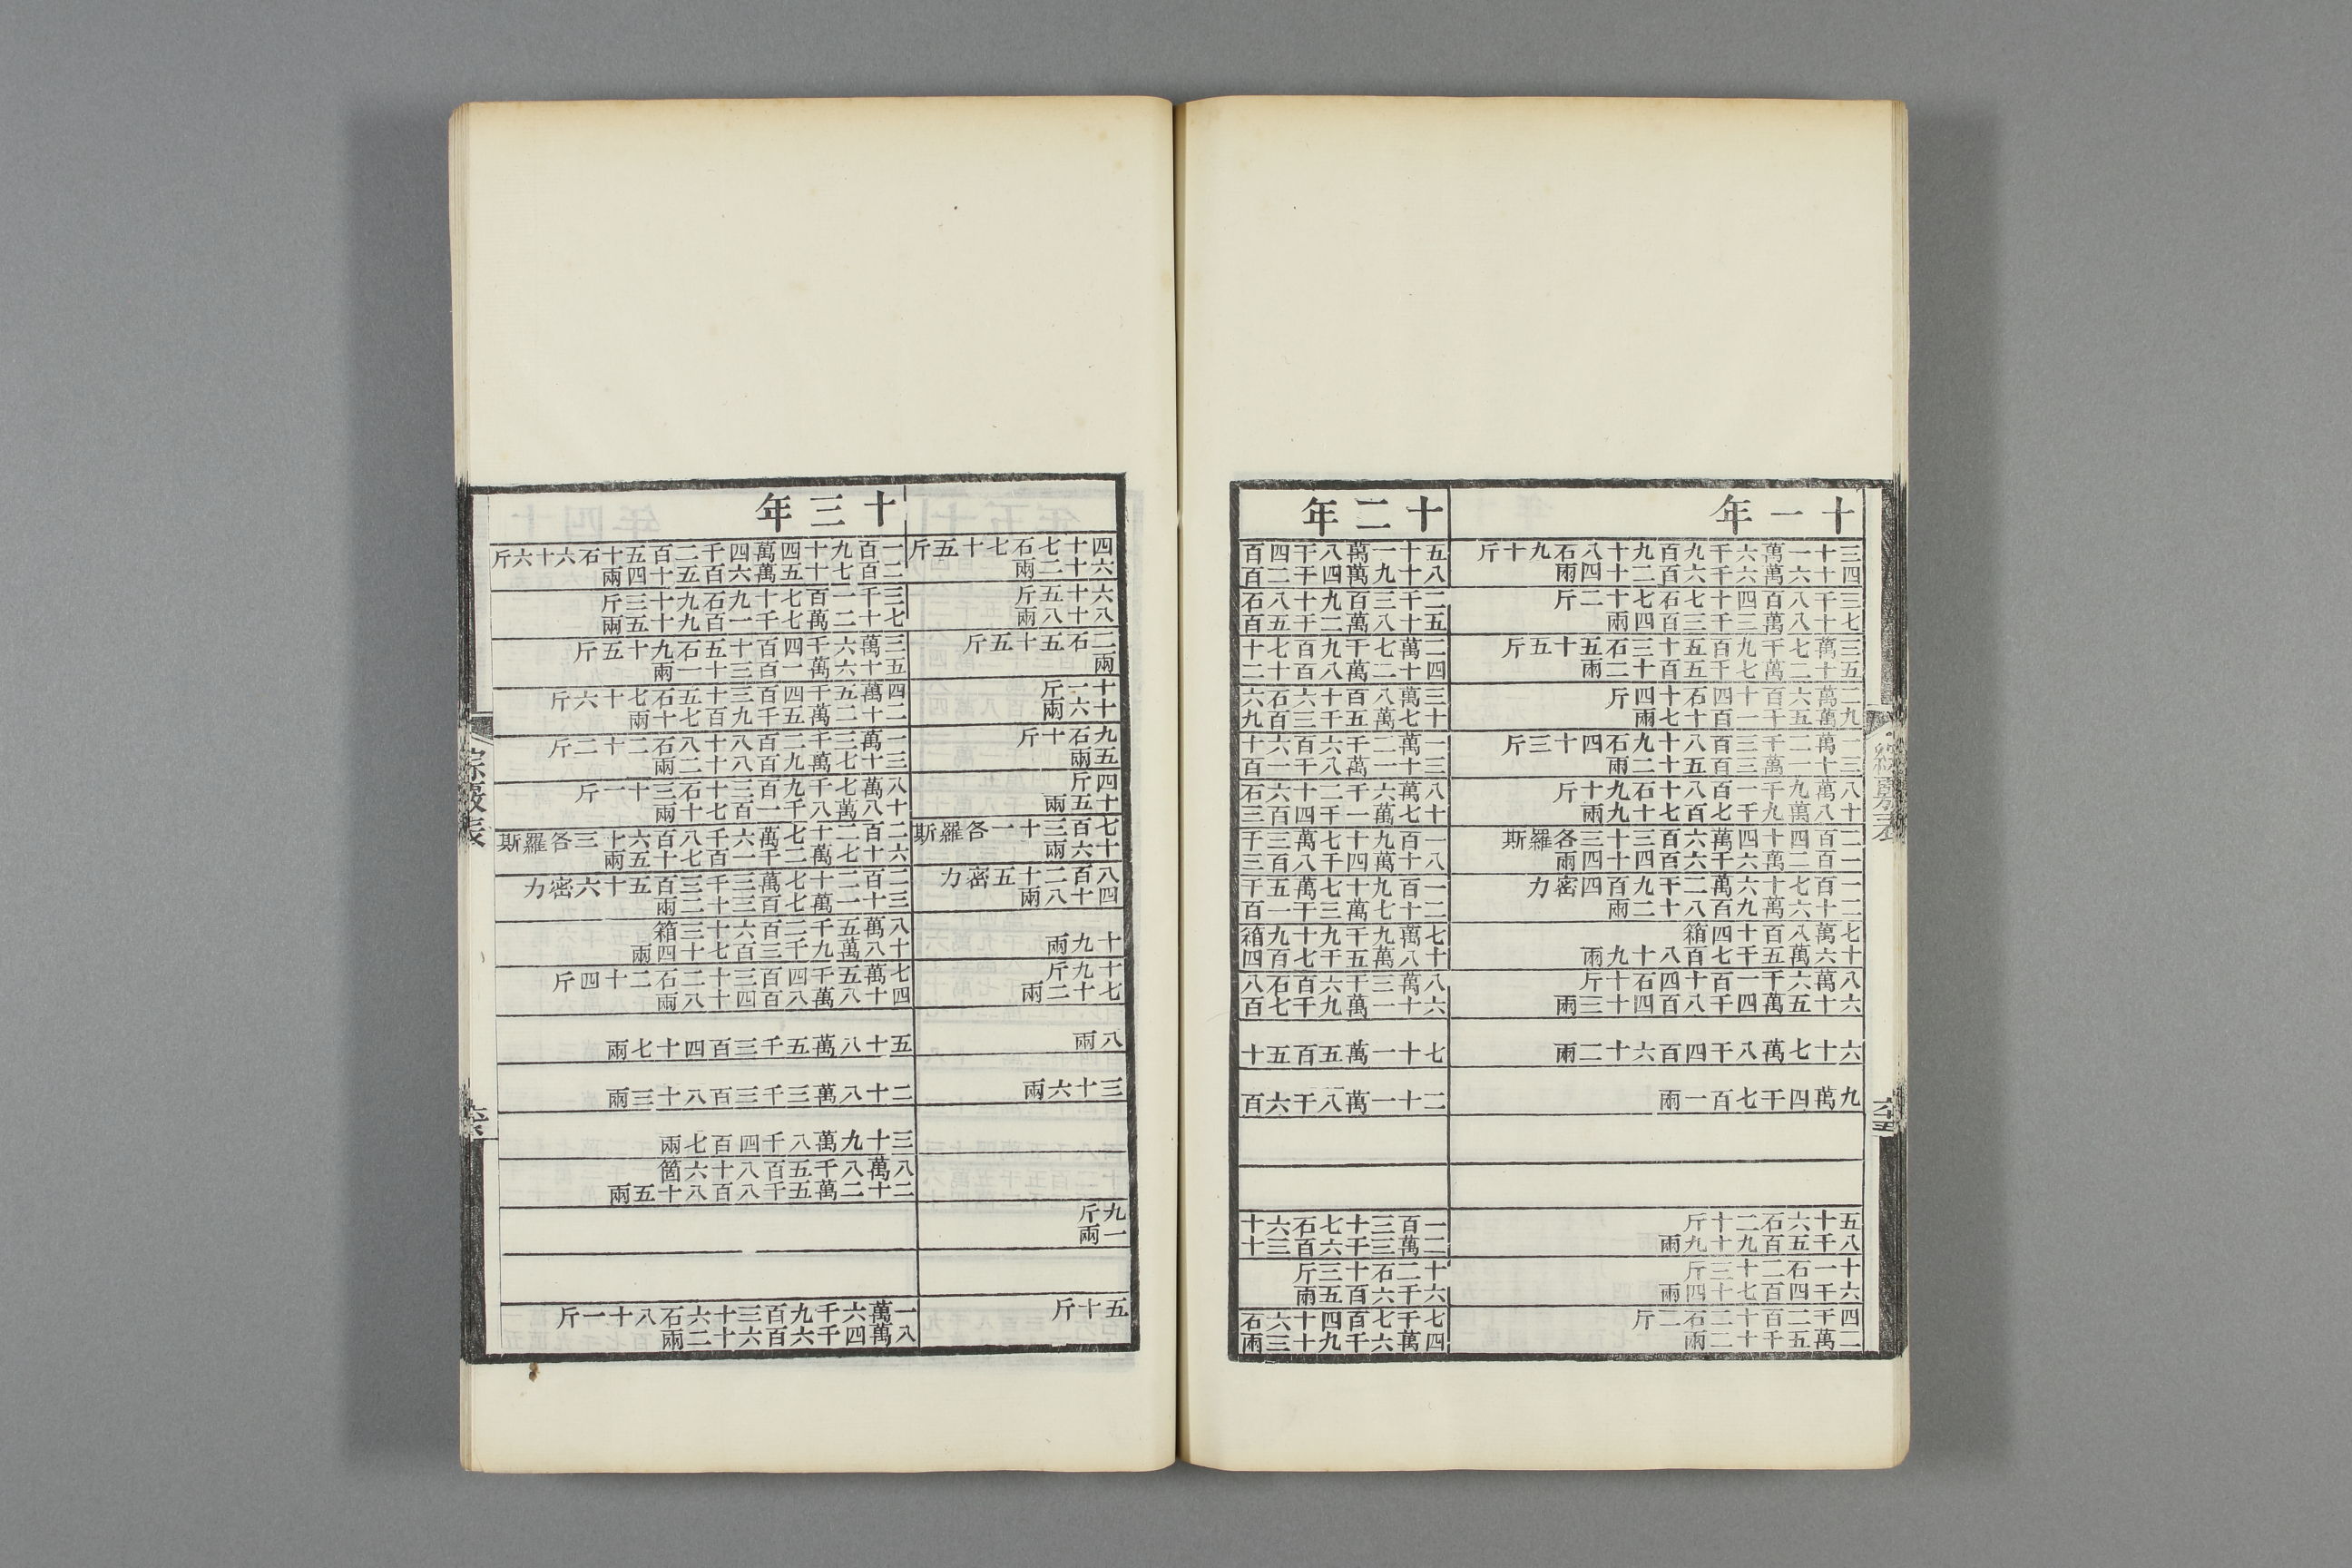 十一年
三十一萬六千九百九十八石九十斤
四十六萬六千六百二十四兩
三千八百四十七石七十二斤
七十八萬三千三百四兩
三萬七千九百五十三石五十五斤
五十二萬七千五百十二兩
二萬六百十四石十四斤
九萬五千一百十七兩
一萬二千三百八十九石四十三斤
三十一萬三百五十二兩
八萬九千一百八十石九十斤
十八萬九千七百七十九兩
二百四十四萬六百三十三各羅斯
一百二萬六千六百四十四兩
一百七十六萬二千九百四密力
二十六萬九百八十二兩
七萬八百十四箱
十六萬五千七百八十九兩
八萬六千一百十四石十斤
六十五萬四千八百四十三兩
六十七萬八千四百六十二兩
九萬四千七百一兩
五十六石二十斤
八千五百九十九兩
十一石二十三斤
六千四百七十四兩
四千二百十二石二斤
二萬五千十二兩
十二年
五十一萬八千四百
八十九萬四千二百
二千三百九十八石
五十八萬二千五百
二萬七千九百七十
四十二萬八百十二
三萬八百十六石六
十七萬五千三百九
一萬二千六百六十
三十一萬八千一百
八萬六千二十六石
十七萬一千四百三
一百九十七萬三千
八十萬四千八百三
一百九十七萬五千
二十七萬三千一百
七萬九千九十九箱
十八萬五千七百四
八萬三千六百石八
六十一萬九千七百
七十一萬五百五十
二十一萬八千六百
一百三十七石六十
二萬三千六百三十
十二石十三斤
六千六百五兩
七千七百四十六石
四萬六千九十三兩
綜覈表
六五
四十七石七十五斤
六十二兩
六十五斤
八十八兩
二石五十五斤
兩
十一斤
十六兩
九石十斤
五兩
四斤
十五兩
七百三十一各羅斯
十六兩
八百二十五密力
四十八兩
十九兩
十九斤
七十二兩
八兩
三十六兩
九斤
一兩
五十斤
十三年
一百九十四萬四千二百五十石六十六斤
二百七十五萬六百五十四兩
三千一百七十九石九十三斤
七十二萬七千一百九十五兩
三萬六千四百十五石九十五斤
五十六萬一百三十一兩
四萬五千四百三十五石七十六斤
二十二萬五千九百七十兩
一萬三千二百八十八石二十二斤
三十七萬九百八十二兩
八萬七千九百三十石三十一斤
十八萬八千一百七十三兩
二百二十七萬六千八百六十三各羅斯
六十七萬二千一百七十五兩
二百二十七萬三千三百五十六密力
三十一萬七百三十二兩
八萬五千二百六十三箱
十八萬九千三百七十四兩
七萬五千四百三十二石二十四斤
四十八萬八百四十八兩
五十八萬五千三百四十七兩
二十八萬三千三百八十三兩
三十九萬八千四百七兩
八萬八千五百八十六箇
二十二萬五千八百八十五兩
一萬六千九百三十六石八十一斤
八萬四千六百六十二兩
綜覈表
六六